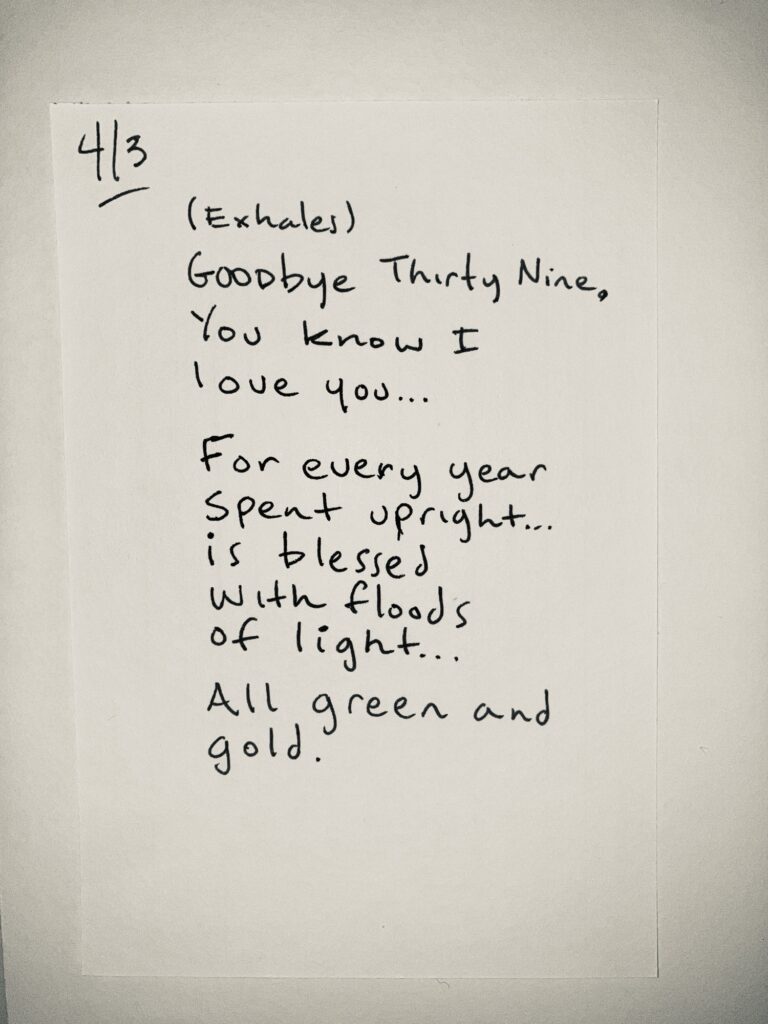 4/3
(Exhales)
Goodbye Thirty Nine,
You know I
love you...
For every year
spent upright...
is blessed
with floods
of light...
All green and
gold.